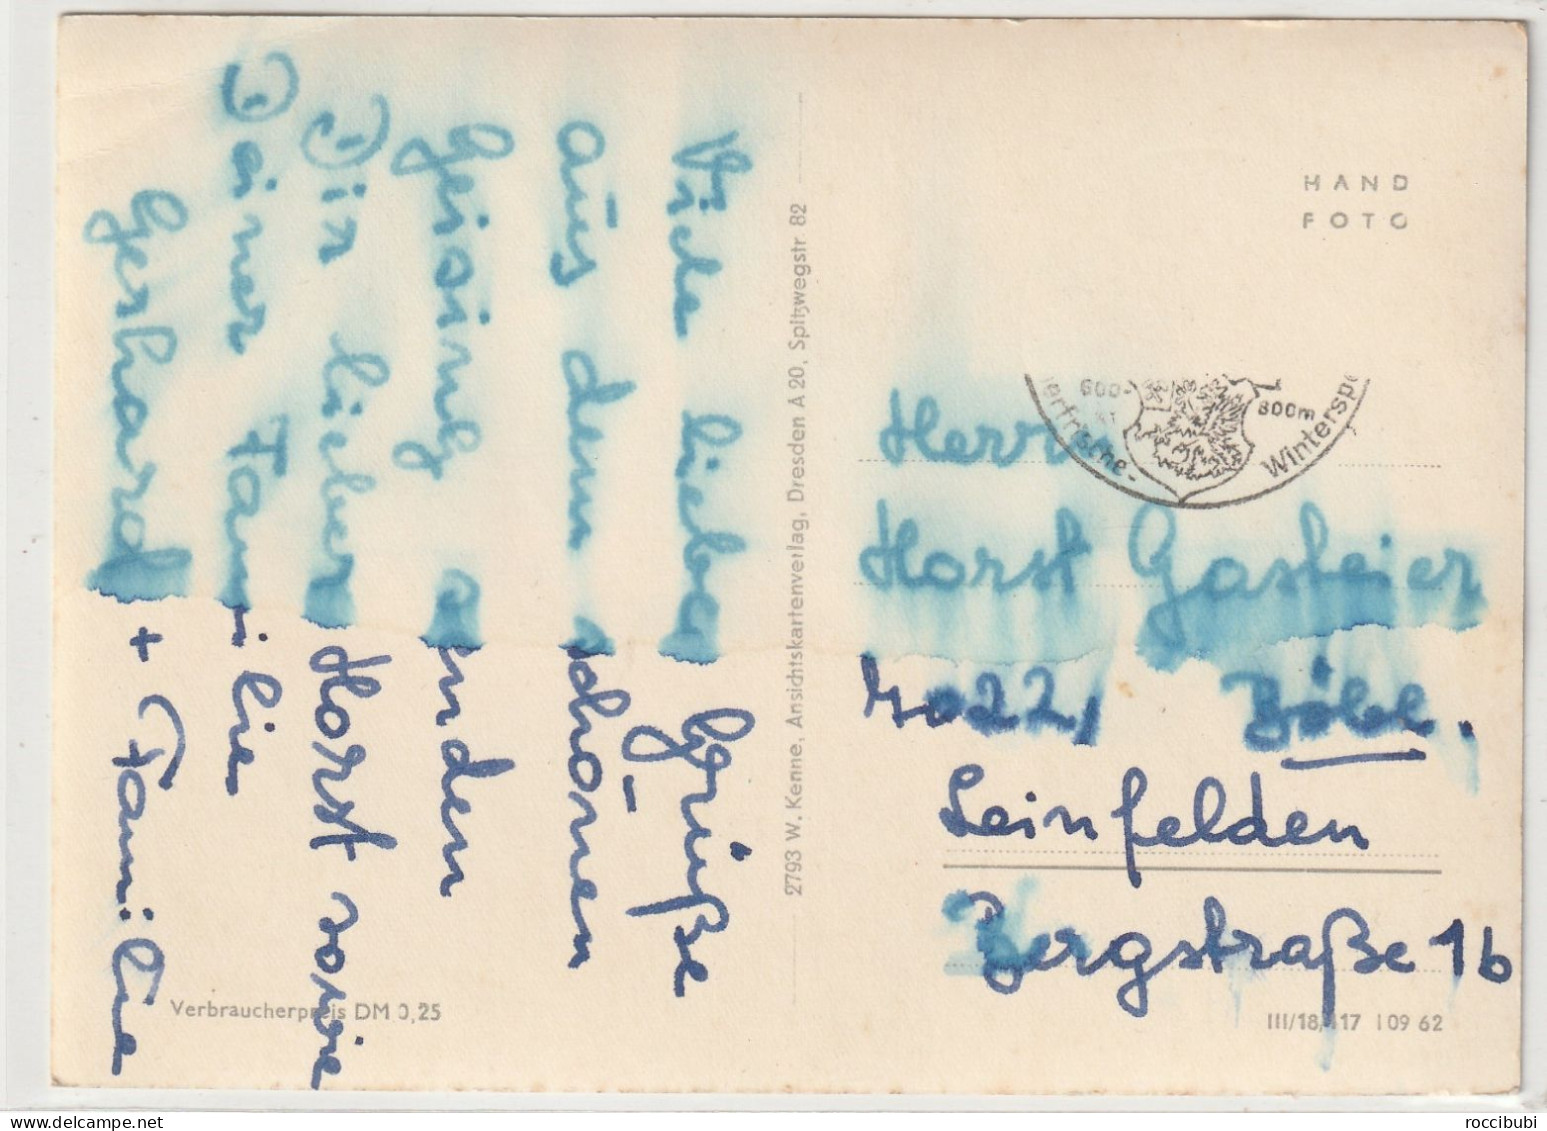 Viele liebe Grüße
aus dem schönen
Geising senden
Dir lieber Horst sowie
Deiner Familie
Gerhard + Familie
2793 W. Kenne, Ansichtskartenverlag, Dresden A 20, Spitzwegstr. 82
Verbraucherpreis DM 0,25
HAND
FOTO
600- 800m
erfrische - Winterspo
Herrn
Horst Gasteier
7022, Böbl.
Leinfelden
Bergstraße 1b
III/18/117 109 62
roccibubi